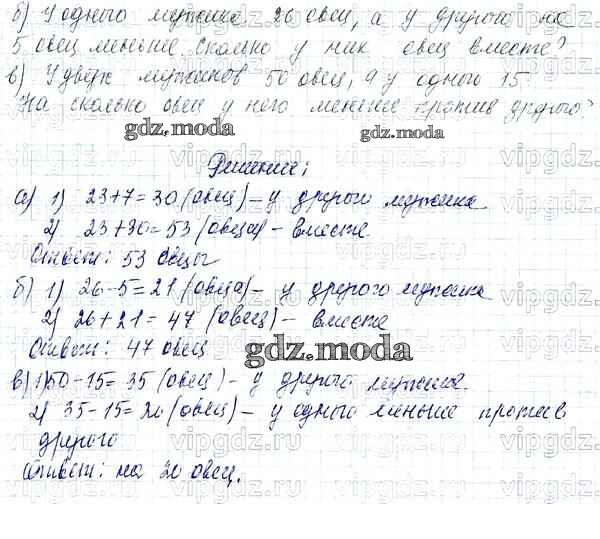 б) У одного мужика 26 овец, а у другого на
5 овец меньше. Сколько у них овец вместе?
в) У двух мужиков 50 овец, а у одного 15.
На сколько овец у него меньше против другого?
gdz.moda gdz.moda
Решение:
а) 1) 23+7=30 (овец) – у другого мужика
2) 23+30=53 (овца) – вместе.
Ответ: 53 овцы
б) 1) 26-5=21 (овца) – у другого мужика
2) 26+21=47 (овец) – вместе
Ответ: 47 овец
gdz.moda
в) 1) 50-15=35 (овец) – у другого мужика.
2) 35-15=20 (овец) – у одного меньше против
другого
Ответ: на 20 овец.